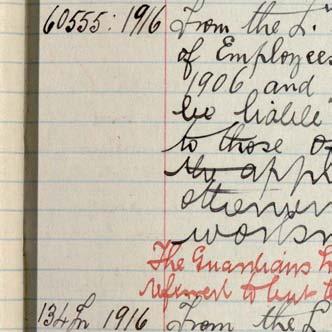 60555: 1916 From the L.
of Employees
1906 and
be liable
to those
the appl
otherwi
works
The Guardians h
referred to but t
1916 From the L